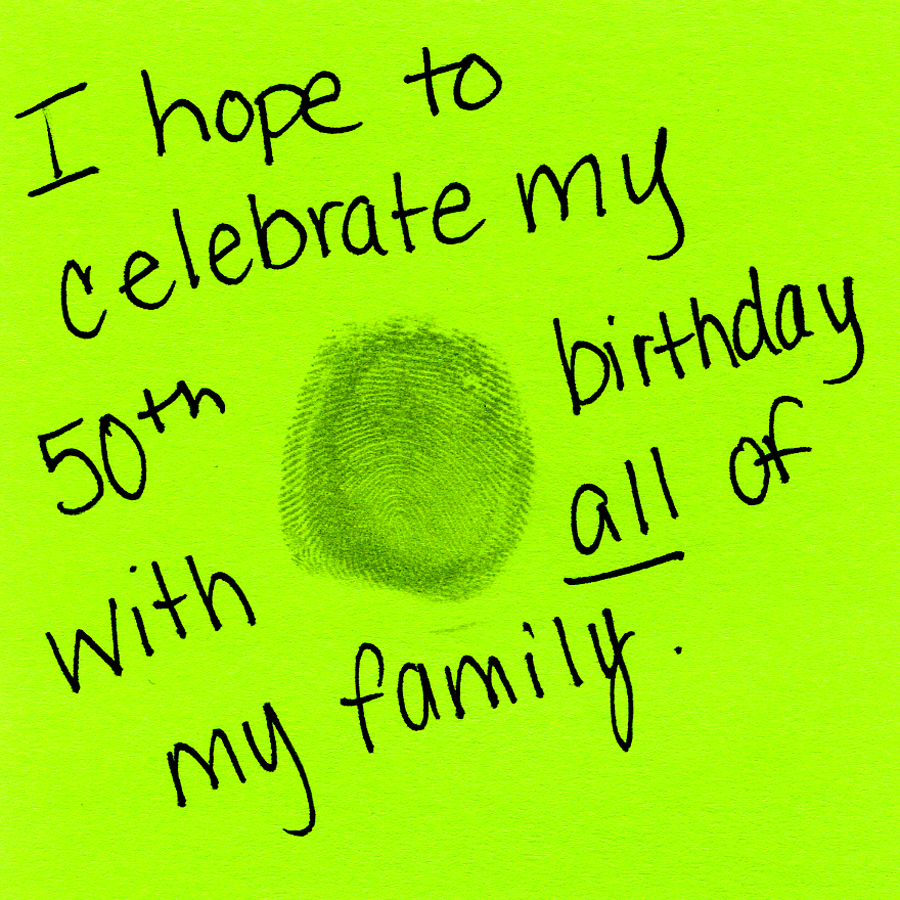 I hope to
celebrate my
50th birthday
with all of
my family.